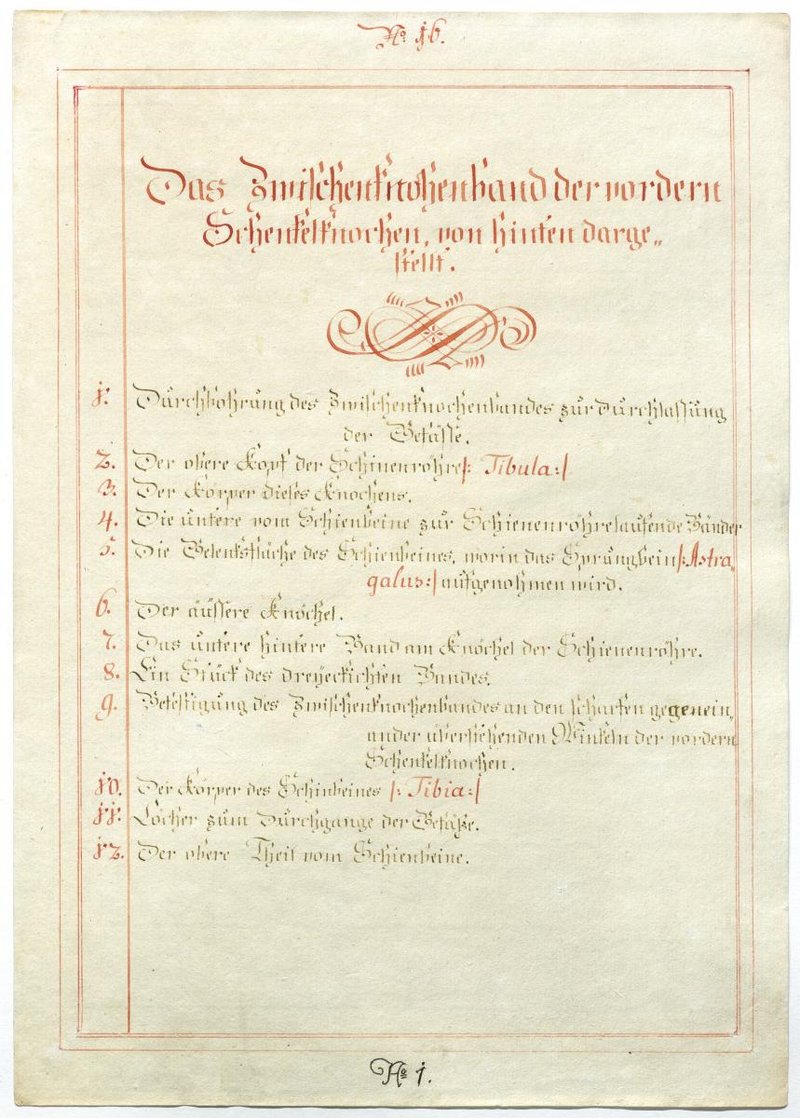 No 16.
Das Zwischenknochenband der vordern
Schenkelknochen, von hinten darge„
stellt.
1. Durchbohrung des Zwischenknochenbandes zur Durchlassung
der Gefässe.
2. Der obere Kopf der Schinenröhre |: Tibula :|
3. Der Körper dieses Knochens.
4. Die untere vom Schienbeine zur Schienenröhre laufende Bänder
5. Die Gelenksfläche des Schienbeines, worin das Sprungbein |: Astra„
galus :| aufgenohmen wird.
6. Der äussere Knöchel.
7. Das untere hintere Band am Knöchel der Schienenröhre.
8. Ein Stück des dreyeckichten Bandes.
9. Befestigung des Zwischenknochenbandes an den scharfen gegenein„
ander überstehenden Winkeln der vordern
Schenkelknochen.
10. Der Körper des Schinbeines |: Tibia :|
11. Löcher zum Durchgange der Gefäße.
12. Der obere Theil vom Schienbeine.
No 1.